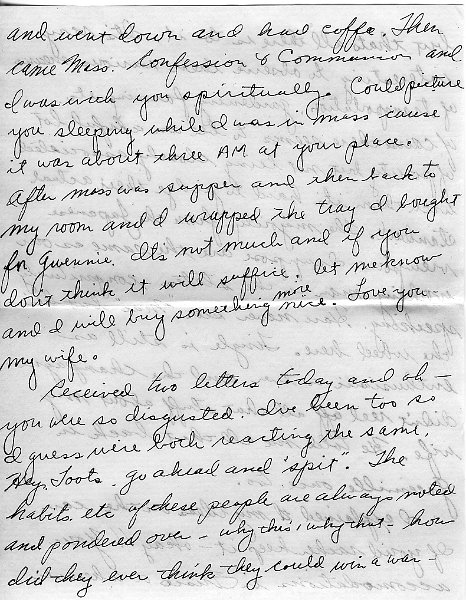 and went down and had coffe. Then
came Mass. Confession & Communion and
I was wich you spiritually. Could picture
you sleeping while I was in mass cause
it was about three AM at your place.
After mass was supper and then back to
my room and I wrapped the tray I bought
for Gwennie. It's not much and if you
don't think it will suffice. let me know
and I will buy something more nice. Love you
my wife.
Received two letters today and oh -
you were so disgusted. I've been too so
I guess we're both reacting the same.
Hey. Toots. go ahead and "spit". The
habits. etc of these people are always noted
and pondered over - why this, why that - how
did they ever think they could win a war -